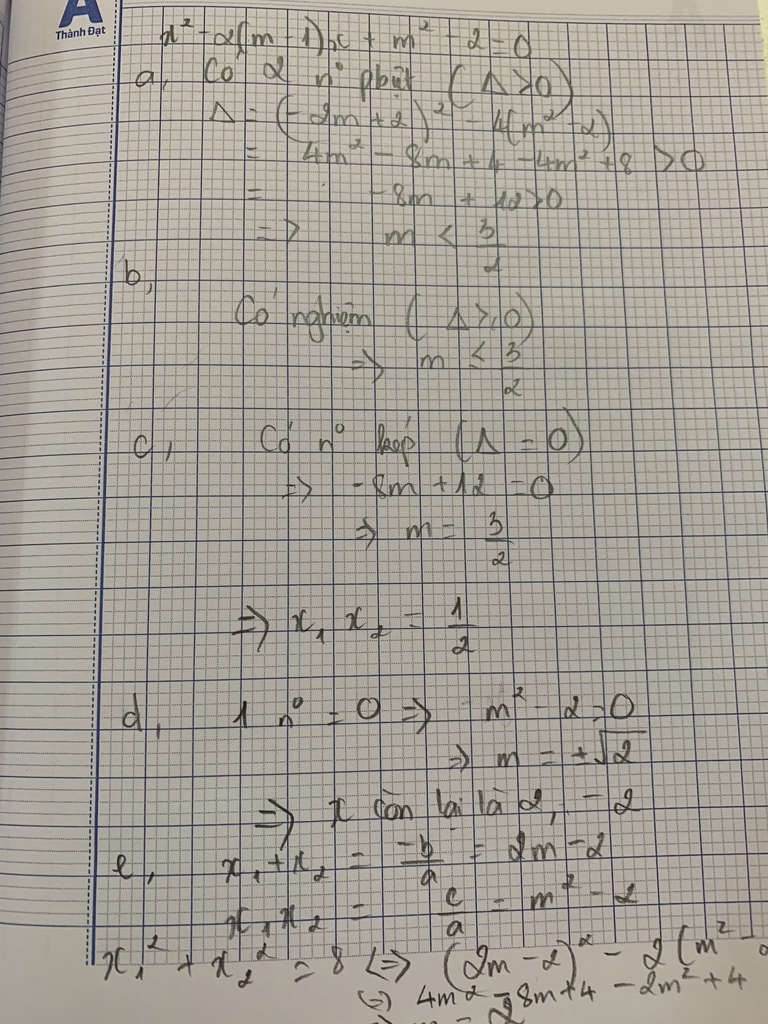 A
Thành Đạt
x² - 2(m - 1)x + m² - 2 = 0
a, Có 2 n⁰ pbiệt (Δ > 0)
Δ = (-2m + 2)² - 4(m² - 2)
= 4m² - 8m + 4 - 4m² + 8 > 0
= -8m + 12 > 0
=> m < 3/2
b,
Có nghiệm (Δ ≥ 0)
=> m ≤ 3/2
c, Có n⁰ kép (Δ = 0)
=> -8m + 12 = 0
=> m = 3/2
=> x₁ x₂ = 1/2
d, 1 n⁰ = 0 => m² - 2 = 0
=> m = ±√2
=> x còn lại là 2, -2
e, x₁ + x₂ = -b/a = 2m - 2
x₁x₂ = c/a = m² - 2
x₁² + x₂² = 8 <=> (2m - 2)² - 2(m² -
<=> 4m² - 8m + 4 - 2m² + 4